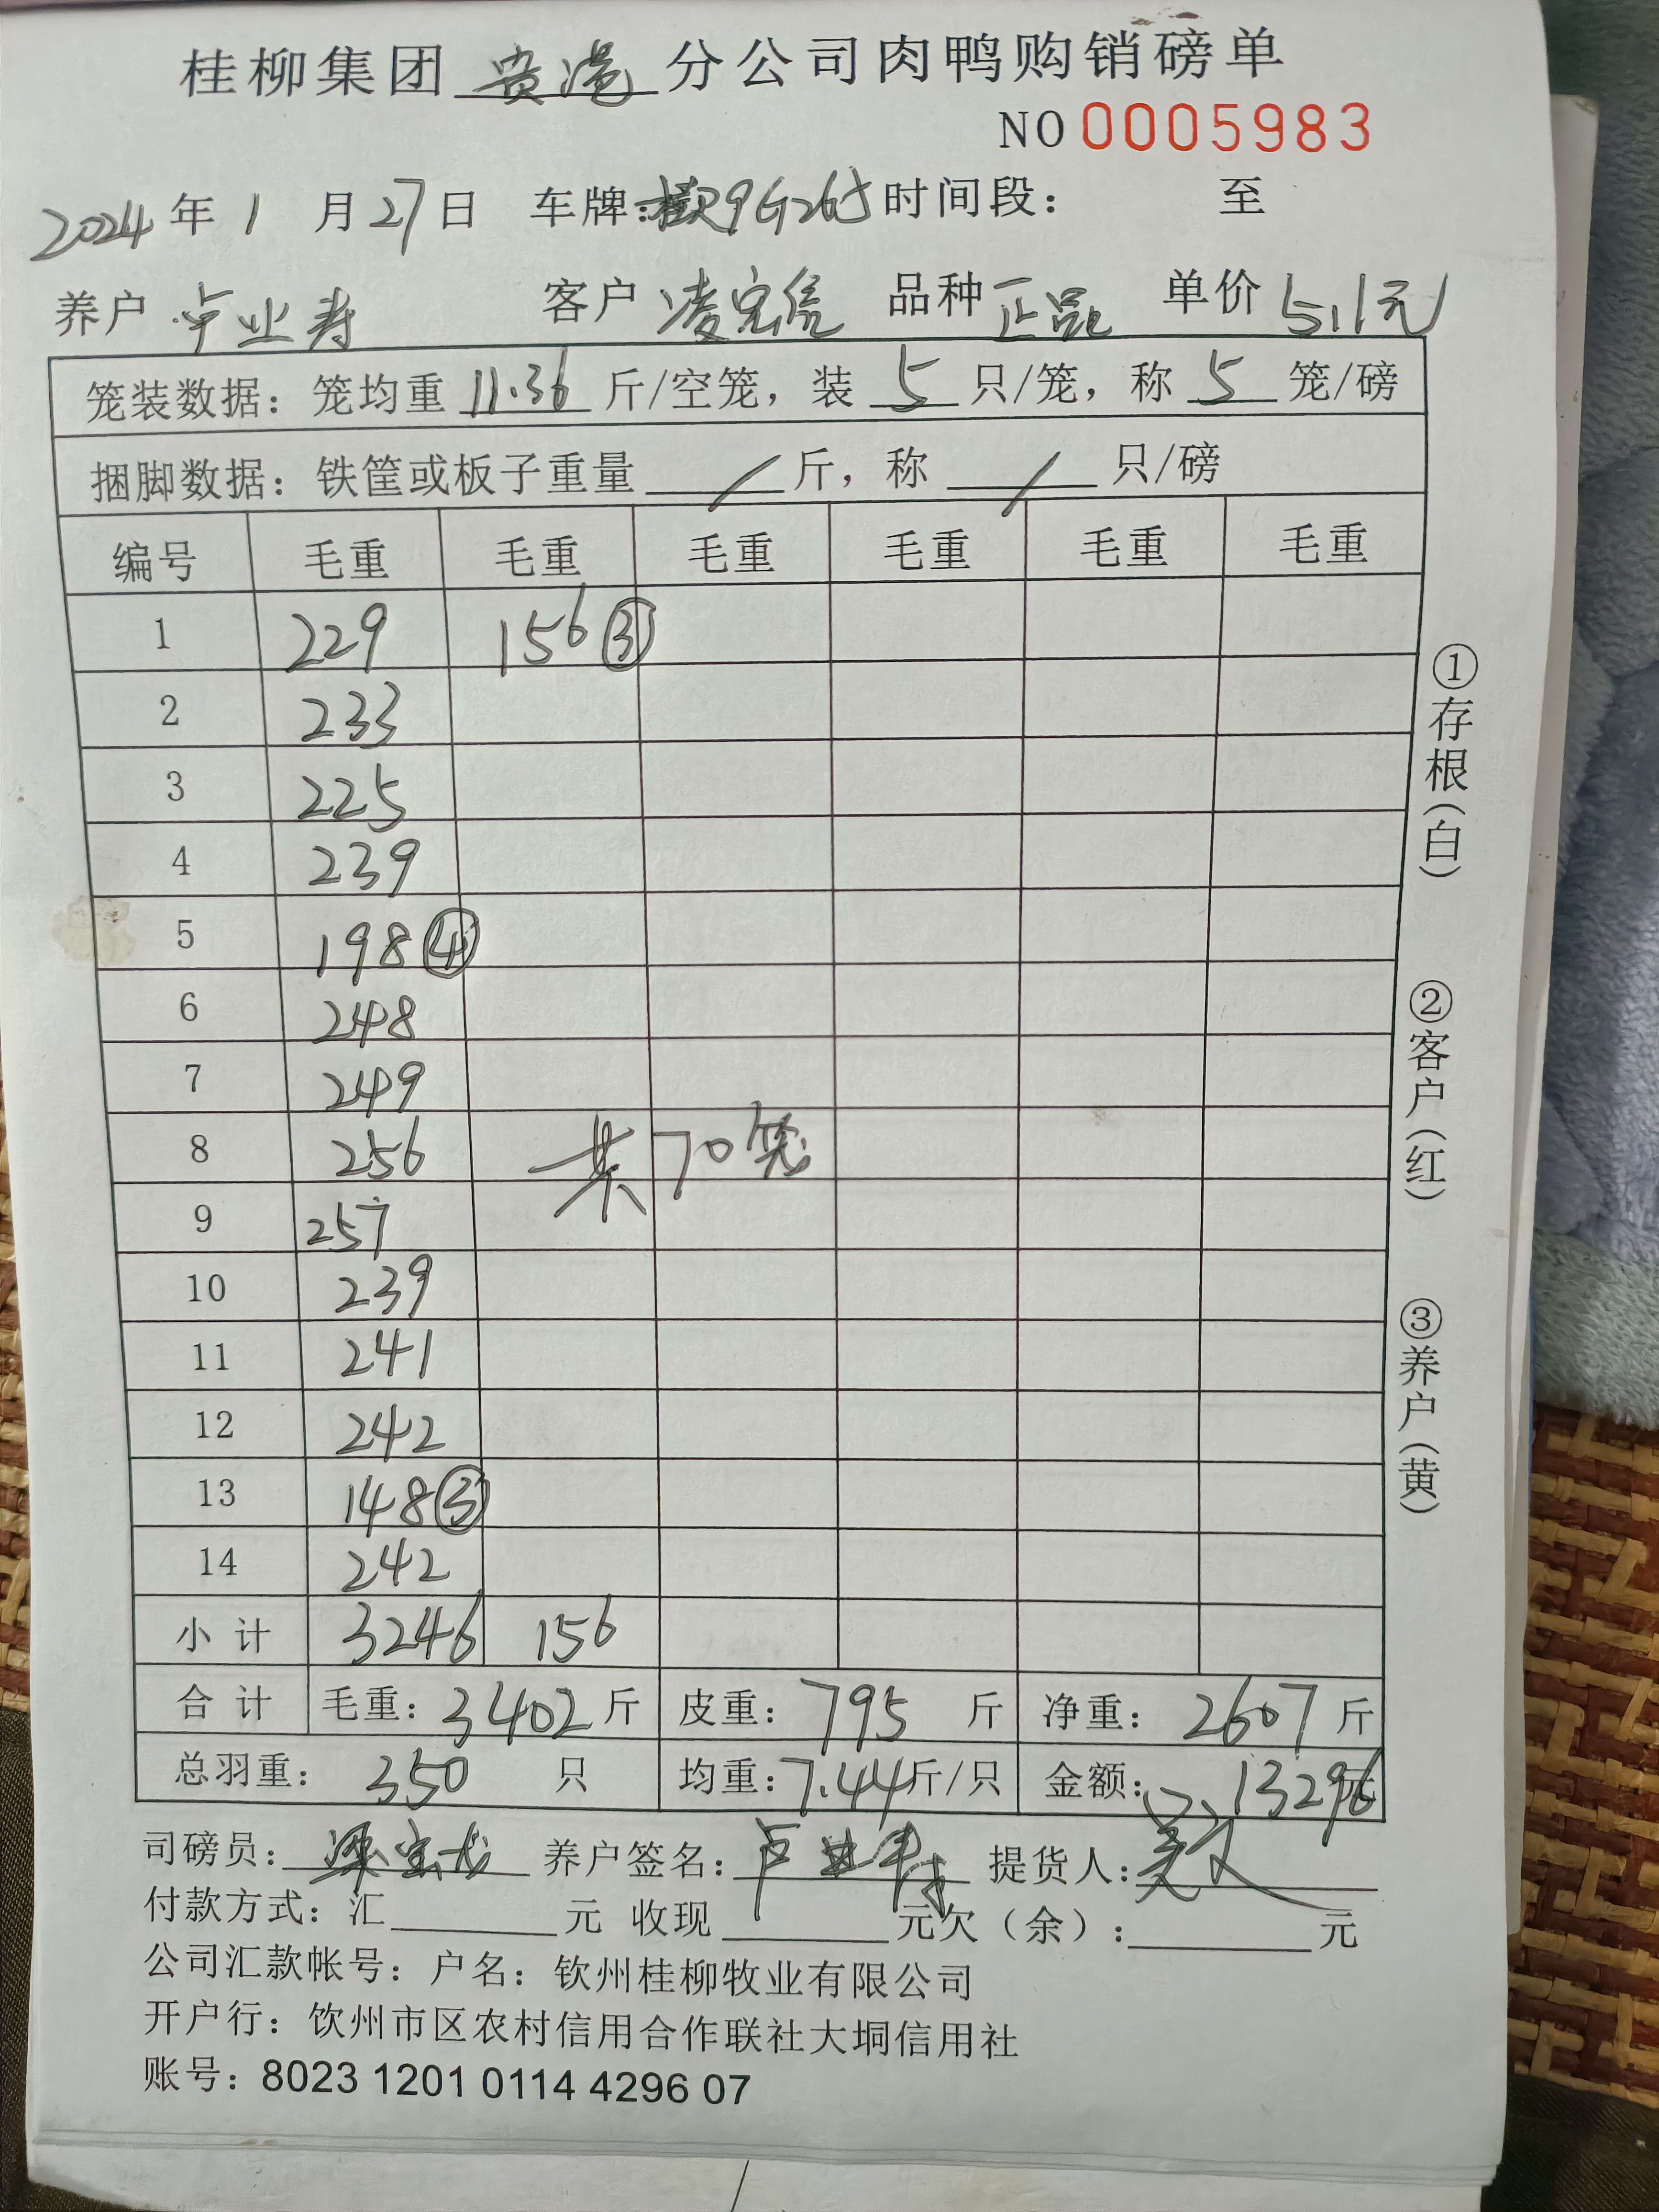 桂柳集团 贵港 分公司肉鸭购销磅单
NO 0005983
2024 年 1 月 27 日 车牌: 9G265 时间段: 至
养户 卢业寿 客户 凌宏 品种 正品 单价 5.1元
笼装数据: 笼均重 11.36 斤/空笼, 装 5 只/笼, 称 5 笼/磅
捆脚数据: 铁筐或板子重量 / 斤, 称 / 只/磅
编号 毛重 毛重 毛重 毛重 毛重 毛重
1 229 156 ③
2 233
3 225
4 239
5 198 ④
6 248
7 249
8 256 共70笼
9 257
10 239
11 241
12 242
13 148 ③
14 242
小计 3246 156
合计 毛重: 3402 斤 皮重: 795 斤 净重: 2607 斤
总羽重: 350 只 均重: 7.44 斤/只 金额: 13296 元
司磅员: 养户签名: 卢业寿 提货人:
付款方式: 汇 元 收现 元欠（余）: 元
公司汇款帐号: 户名: 钦州桂柳牧业有限公司
开户行: 饮州市区农村信用合作联社大垌信用社
账号: 8023 1201 0114 4296 07
①存根(白)
②客户(红)
③养户(黄)